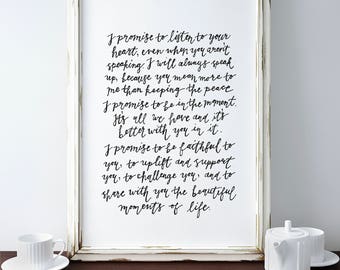 I promise to listen to your
heart, even when you aren't
speaking. I will always speak
up, because you mean more to
me than keeping the peace
I promise to be in the moment.
It's all we have and it's
better with you in it.
I promise to be faithful to
you, to uplift and support
you, to challenge you, and to
share with you the beautiful
moments of life.